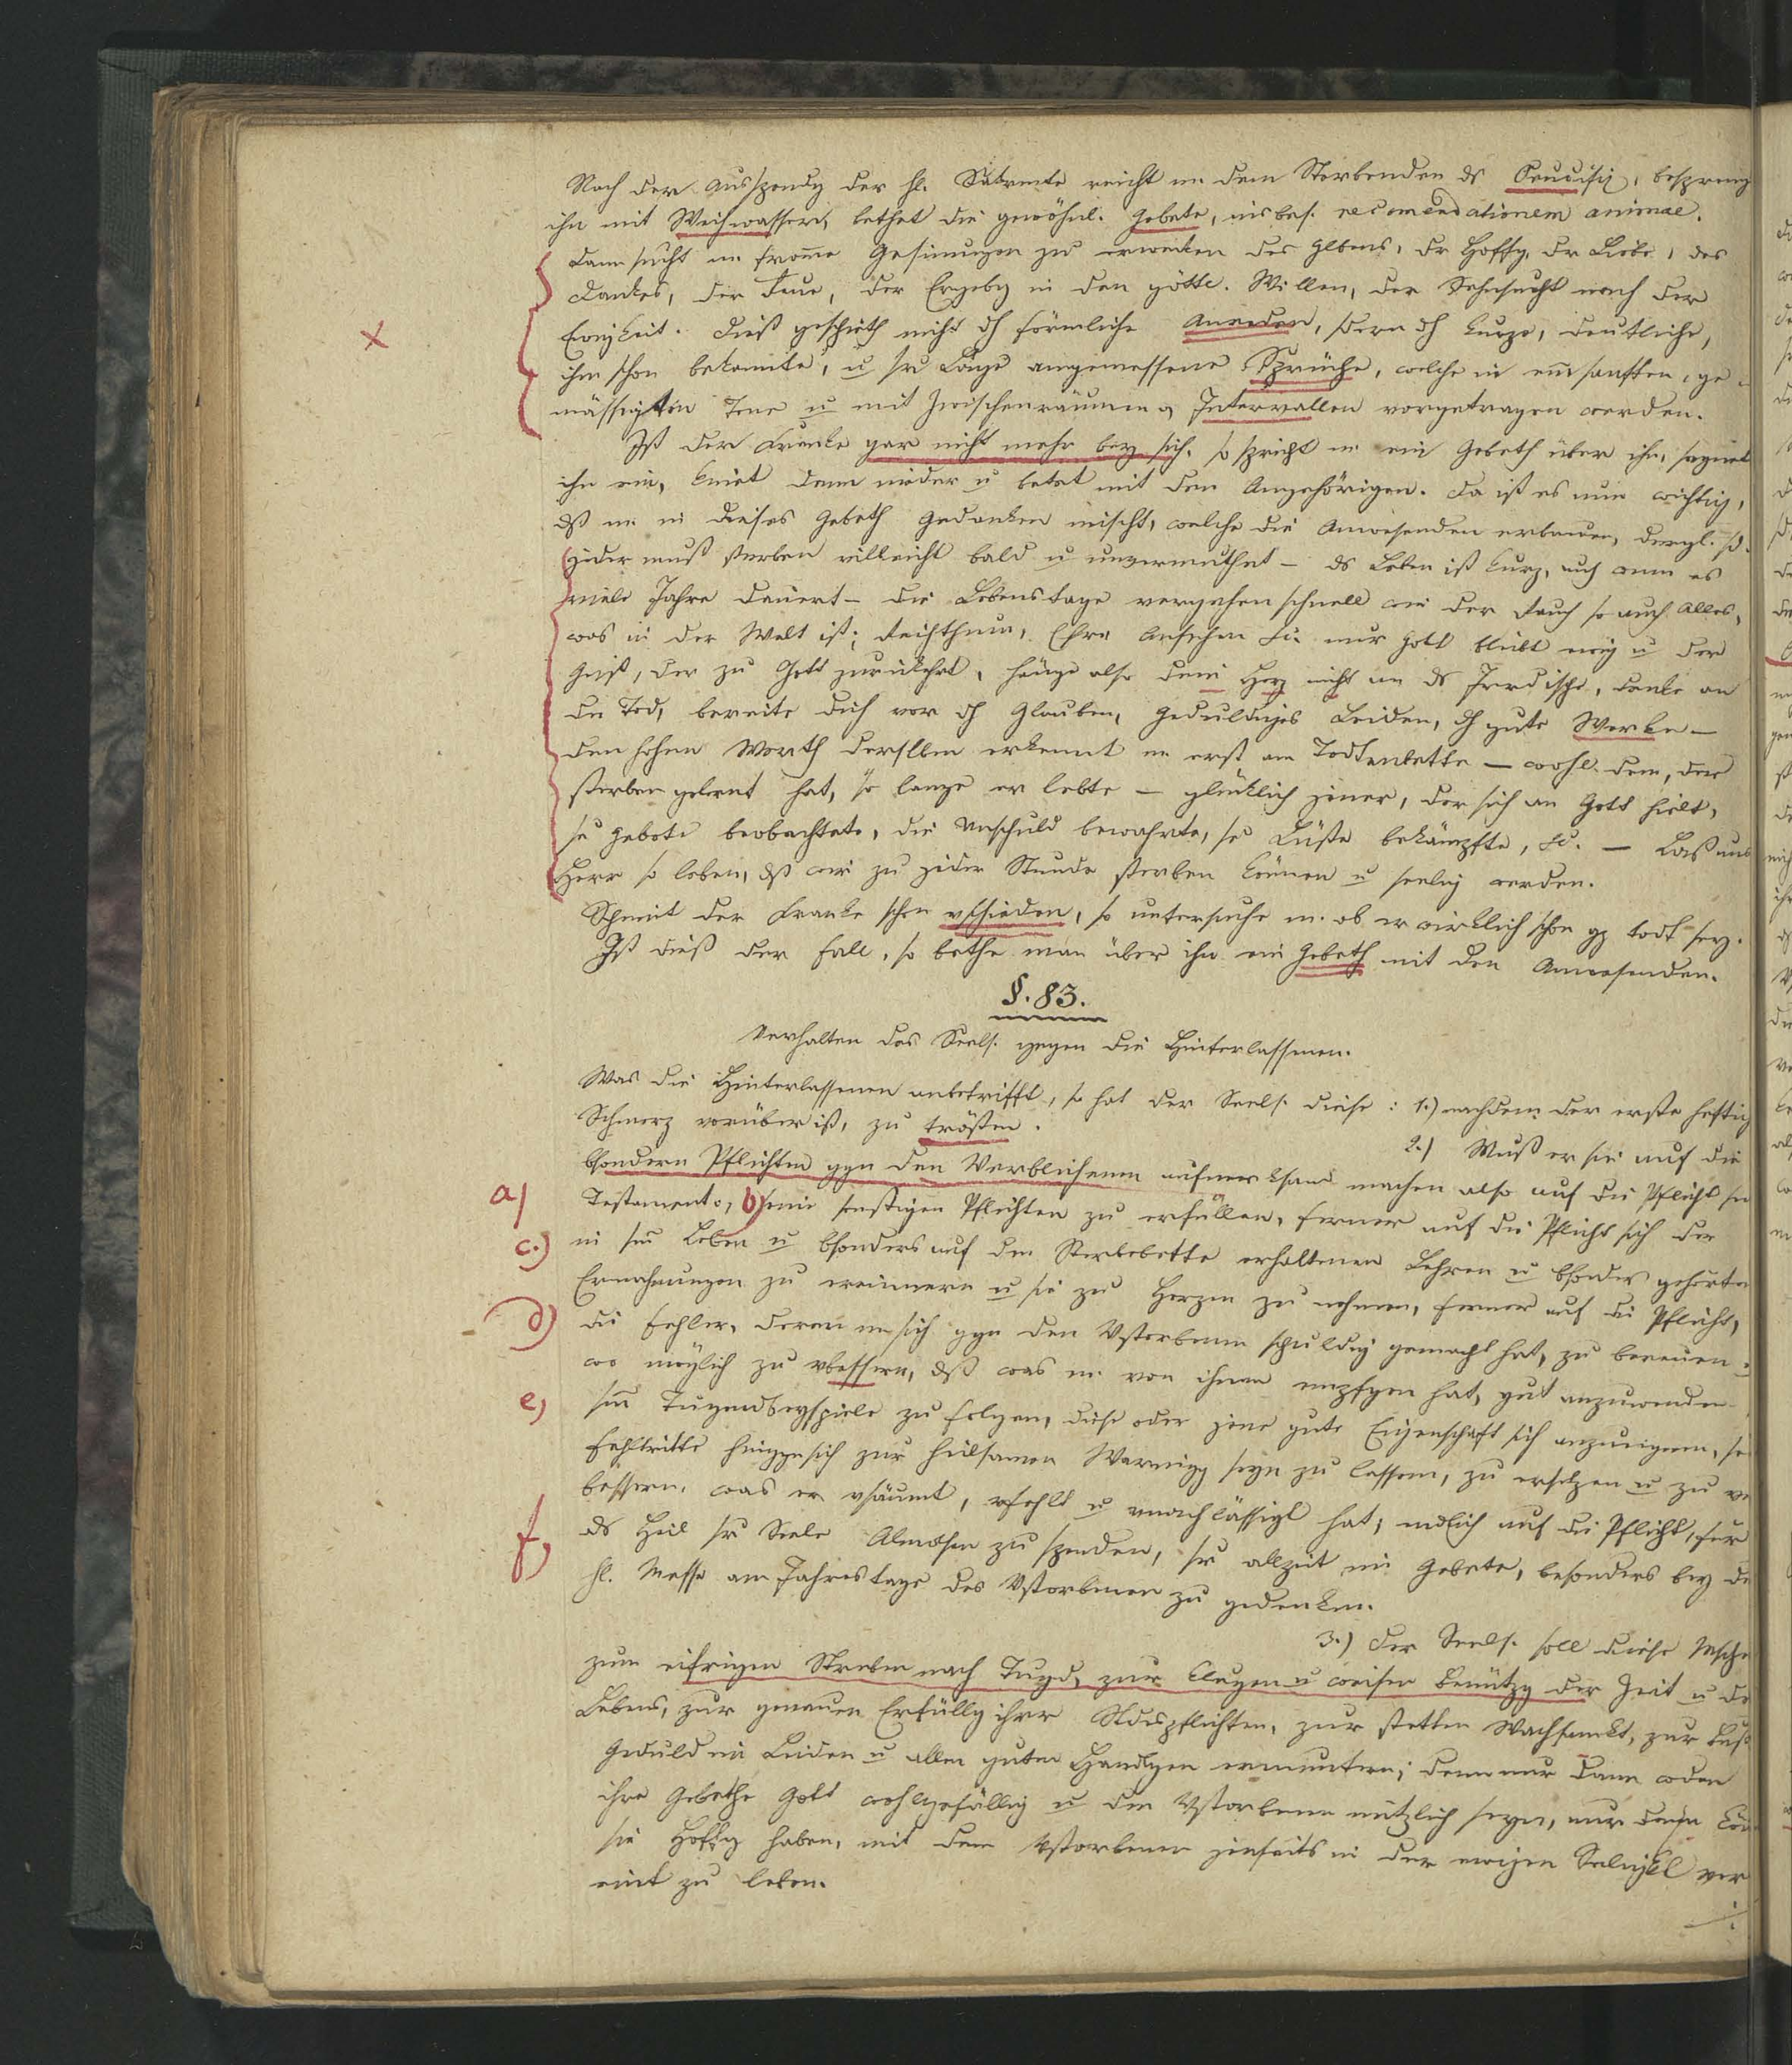 Nach der Ausspendg der hl. Sakrmente reicht m. dem Sterbenden ds Crucifix, bespreng
ihn mit Weihwasser, bethet die gewöhnl. Gebete, insbes. recomendationem animae.
Dann sucht m. from̄e Gesinnugen zu erwecken des Glbens, dr Hoffg, dr Liebe, des
Dankes, der Reue, der Ergebg in den göttl. Willen, der Sehnsucht nach der
Ewigkeit. Dieß geschieht nicht dch förmliche Anreden, sdern dch kurze, deutliche,
ihm schon bekannte, u sr Lage angemessene Sprüche, welche in em̄ sanften, ge
mässigten Tone u mit Zwischenräumen Intervallen vorgetragen werden.
Ist der Kranke gar nicht mehr bey sich, so spricht m. ein Gebeth über ihn, segnet
ihn ein, kniet dann nieder u betet mit den Angehörigen. Da ist es nun wichtig,
dß m. in dieses Gebeth Gedanken mischt, welche die Anwesenden erbauen, dergl. sd.
Jeder muß sterben villeicht bald u unvermuthet – ds Leben ist kurz, auch wenn es
viele Jahre dauert – die Lebenstage vergehen schnell wie der Rauch so auch Alles,
was in der Welt ist; Reichthum, Ehre Ansehen &c. nur Gott bleibt ewig u der
Geist, der zu Gott zurükehrt, hänge also dein Herz nicht an ds Irrdische, denke an
den Tod, bereite dich vor dch Glauben, geduldiges Leiden, dch gute Werke –
den hohen Werth derselben erkennt m. erst am Todtenbette – wohl dem, der
sterben gelernt hat, so lange er lebte – glücklich jener, der sich an Gott hielt,
se Gebote beobachtete, die Unschuld bewahrte, se Lüste bekämpfte, &c. – Laß uns
Herr so leben, dß wir zu jeder Stunde sterben können u seelig werden.
Scheint der Kranke schon vschieden, so untersuche m. ob er wirklich schon gz todt sey.
Ist dieß der Fall, so bethe man über ihn ein Gebeth mit den Anwesenden.
§. 83.
Verhalten des Seels. gegen die Hinterlassenen.
Was die Hinterlassenen anbetrifft, so hat der Seels. diese: 1.) nachdem der erste heftig
Schmerz vorüber ist, zu trösten.
2.) Muß er sie auf die
bsondern Pflichten ggn den Verblichenen aufmerksam machen also auf die Pflicht sn
a) Testamente, b) seine sonstigen Pflichten zu erfüllen, ferner auf die Pflicht sich der
c.) in sm̄ Leben u bsonders auf dem Sterbebette erhaltenen Lehren u bsonders gehörten
Ermahnungen zu erinnern u sie zu Herzen zu nehmen, ferner auf die Pflicht,
d) die Fehler, deren m. sich ggn den Vstorbenen schuldig gemacht hat, zu bereuen
wo möglich zu vbessern, dß was m. von ihnen empfgen hat, gut anzuwenden
e) sm̄ Tugendbeyspiele zu folgen, diese oder jene gute Eigenschaft sich anzueignen, se
Fehltritte hinggn sich zur heilsamen Warnug seyn zu lassen, zu ersetzen u zu ve
bessern, was er vsäumt, vfehlt u vnachlässigt hat; endlich auf die Pflicht, für
f) ds Heil sr Seele Almosen zu spenden, sr allzeit im Gebete, besonders bey der
hl. Messe am Jahrestage des Vstorbenen zu gedenken.
3.) Der Seels. soll diese Mschen
zum eifrigen Streben nach Tugd, zur klugen u weisen Benützg der Zeit u des
Lebens, zur genauen Erfüllg ihrer Stdespflichten, zur stetten Wachsamkt, zur Buße
Geduld in Leiden u allen guten Handlgen ermuntern; denn nur dann wden
ihre Gebethe Gott wohlgefällig u den Vstorbenen nützlich seyn, nur dann kön
sie Hoffg haben, mit dem Vstorbenen jenseits in der ewigen Seligkt ver
eint zu leben.